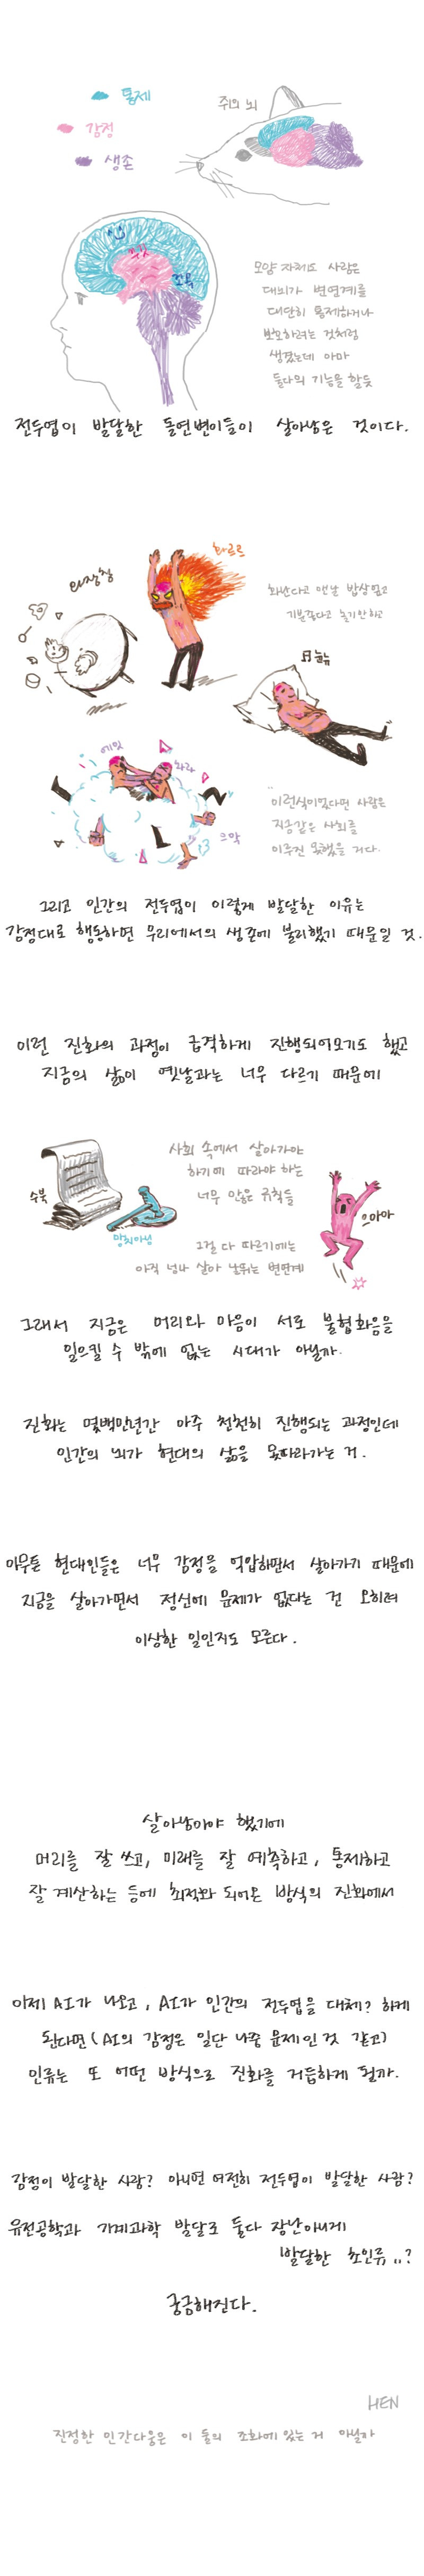 통제
감정
생존
쥐의 뇌
모양 자체도 사람은
대뇌가 변연계를
대단히 통제하거나
보호하려는 것처럼
생겼는데 아마
둘다의 기능을 할듯
전두엽이 발달한 돌연변이들이 살아남은 것이다.
와장창
화르르
화난다고 맨날 밥상 엎고
기분좋다고
에잇
으악
이런식이었다면 사람은
지금같은 사회를
이루진 못했을 거다.
그리고 인간의 전두엽이 이렇게 발달한 이유는
감정대로 행동하면 무리에서의 생존에 불리했기 때문일 것.
이런 진화의 과정이 급격하게 진행되어오기도 했고
지금의 삶이 옛날과는 너무 다르기 때문에
수북
망치아님
사회 속에서 살아가야
하기에 따라야 하는
너무 많은 규칙들
그걸 다 따르기에는
아직 넘나 살아 날뛰는 변연계
으아아
그래서 지금은 머리와 마음이 서로 불협화음을
일으킬 수 밖에 없는 시대가 아닐까.
진화는 몇백만년간 아주 천천히 진행되는 과정인데
인간의 뇌가 현대의 삶을 못따라가는 거.
아무튼 현대인들은 너무 감정을 억압하면서 살아가기 때문에
지금을 살아가면서 정신에 문제가 없다는 건 오히려
이상한 일인지도 모른다.
살아남아야 했기에
머리를 잘 쓰고, 미래를 잘 예측하고, 통제하고
잘 계산하는 등에 최적화 되어온 방식의 진화에서
이제 AI가 나오고, AI가 인간의 전두엽을 대체? 하게
된다면 (AI의 감정은 일단 나중 문제인 것 같고)
인류는 또 어떤 방식으로 진화를 거듭하게 될까.
감정이 발달한 사람? 아니면 여전히 전두엽이 발달한 사람?
유전공학과 기계과학 발달로 둘다 장난아니게
발달한 초인류..?
궁금해진다.
HEN
진정한 인간다움은 이 둘의 조화에 있는 거 아닐까